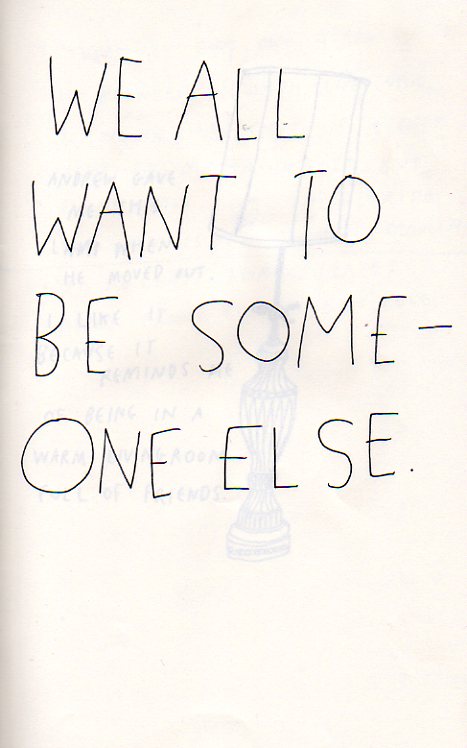 WE ALL
WANT TO
BE SOME-
ONE ELSE.
ANDREW GAVE
ME THIS
LAMP WHEN
HE MOVED OUT.
I LIKE IT
BECAUSE IT
REMINDS ME
OF BEING IN A
WARM LIVING ROOM
FULL OF FRIENDS.